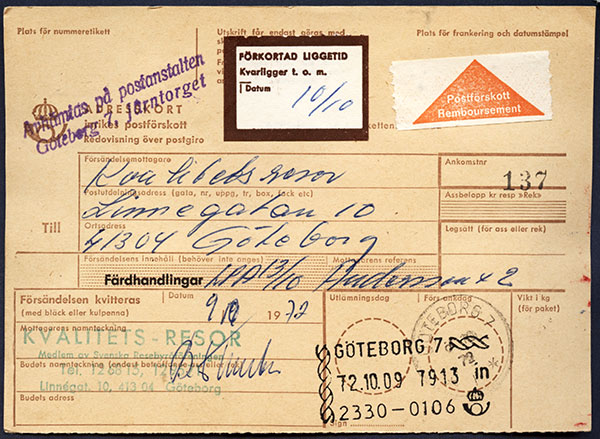 Plats för nummeretikett
Utskrift får endast göras med
Plats för frankering och datumstämpel
Avhämtas på postanstalten
Göteborg 7, Järntorget
FÖRKORTAD LIGGETID
Kvarligger t. o. m.
Datum
10/10
Postförskott
Remboursement
ADRESSKORT
inrikes postförskott
Redovisning över postgiro
etiketten.
Försändelsemottagare
Kvalitetsresor
Ankomstnr
137
Postutdelningsadress (gata, nr, uppg, tr, box, fack etc)
Linnégatan 10
Assbelopp kr resp »Rek»
Till
Ortsadress
41304 Göteborg
Legsätt (för ass eller rek)
Försändelsens innehåll (behöver inte anges)
Mottagarens referens
Färdhandlingar
13/10 Andersson x 2
Försändelsen kvitteras
(med bläck eller kulpenna)
Datum
9/10 1972
Utlämningsdag
Förs ankdag
Vikt i kg
(för paket)
Mottagarens namnteckning
KVALITETS-RESOR
Medlem av Svenska Resebyråföreningen
Budets namnteckning
Tel.
Linnégat. 10, 413 04 Göteborg
Budets adress
GÖTEBORG
72
GÖTEBORG 7
72.10.09 7913 in
2330-0106
Sign